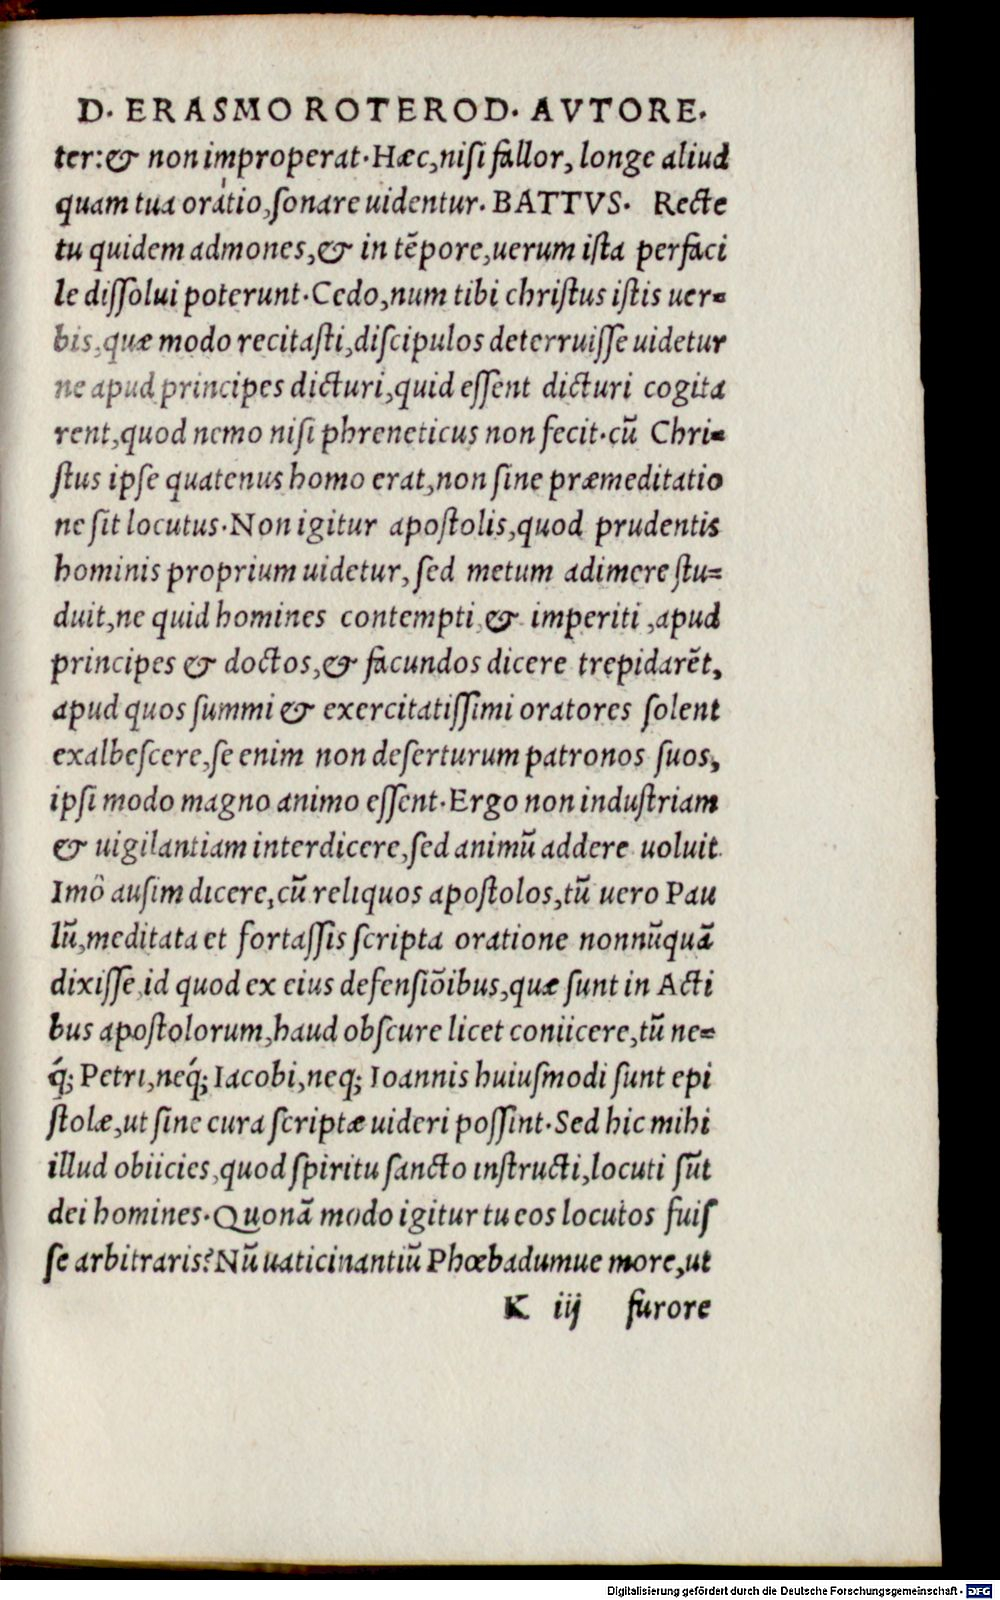 D. ERASMO ROTEROD. AVTORE.
ter:& non improperat. Hæc, niſi fallor, longe aliud
quam tua orátio, ſonare uidentur. BATTVS. Recte
tu quidem admones, & in tēpore, uerum iſta perfaci
le diſſolui poterunt. Cedo, num tibi chriſtus iſtis uer=
bis, quæ modo recitaſti, diſcipulos deterruiſſe uidetur
ne apud principes dicturi, quid eſſent dicturi cogita
rent, quod nemo niſi phreneticus non fecit. cū Chri=
ſtus ipſe quatenus homo erat, non ſine præmeditatio
ne ſit locutus. Non igitur apoſtolis, quod prudentis
hominis proprium uidetur, ſed metum adimere ſtu=
duit, ne quid homines contempti, & imperiti, apud
principes & doctos, & facundos dicere trepidarēt,
apud quos ſummi & exercitatiſſimi oratores ſolent
exalbeſcere, ſe enim non deſerturum patronos ſuos,
ipſi modo magno animo eſſent. Ergo non induſtriam
& uigilantiam interdicere, ſed animū addere uoluit.
Imô auſim dicere, cū reliquos apoſtolos, tū uero Pau
lū, meditata et fortaſſis ſcripta oratione nonnūquā
dixiſſe, id quod ex eius defenſiōibus, quæ ſunt in Acti
bus apoſtolorum, haud obſcure licet coniicere, tū ne=
q́; Petri, neq́; Iacobi, neq; Ioannis huiuſmodi ſunt epi
ſtolæ, ut ſine cura ſcriptæ uideri poſſint. Sed hic mihi
illud obiicies, quod ſpiritu ſancto inſtructi, locuti ſūt
dei homines. Quonā modo igitur tu eos locutos fuiſ
ſe arbitraris? Nū uaticinantiū Phœbadumue more, ut
K iij furore
Digitalisierung gefördert durch die Deutsche Forschungsgemeinschaft - DFG